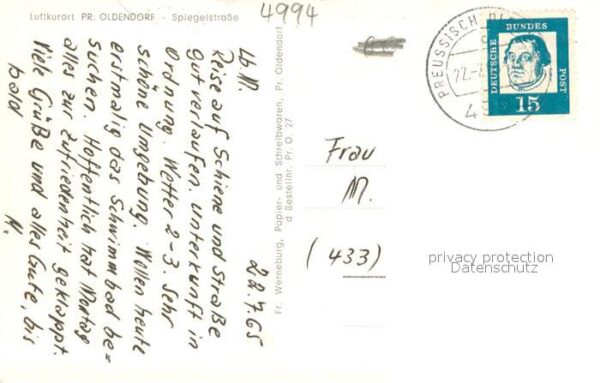 Luftkurort PR. OLDENDORF - Spiegelstraße
4994
22.7.65
Lb. M.
Reise auf Schiene und Straße
gut verlaufen. Unterkunft in
Ordnung. Wetter 2-3. Sehr
schöne Umgebung. Wollen heute
erstmalig das Schwimmbad be=
suchen. Hoffentlich hat Montag
alles zur Zufriedenheit geklappt.
Viele Grüße und alles Gute, bis
bald
N.
Fr. Werneburg, Papier- und Schreibwaren, Pr. Oldendorf
d Bestellnr. Pr. O. 27
PREUSSISCH OLD
22.-7.
DEUTSCHE BUNDES POST
15
Frau
M.
(433)
privacy protection
Datenschutz